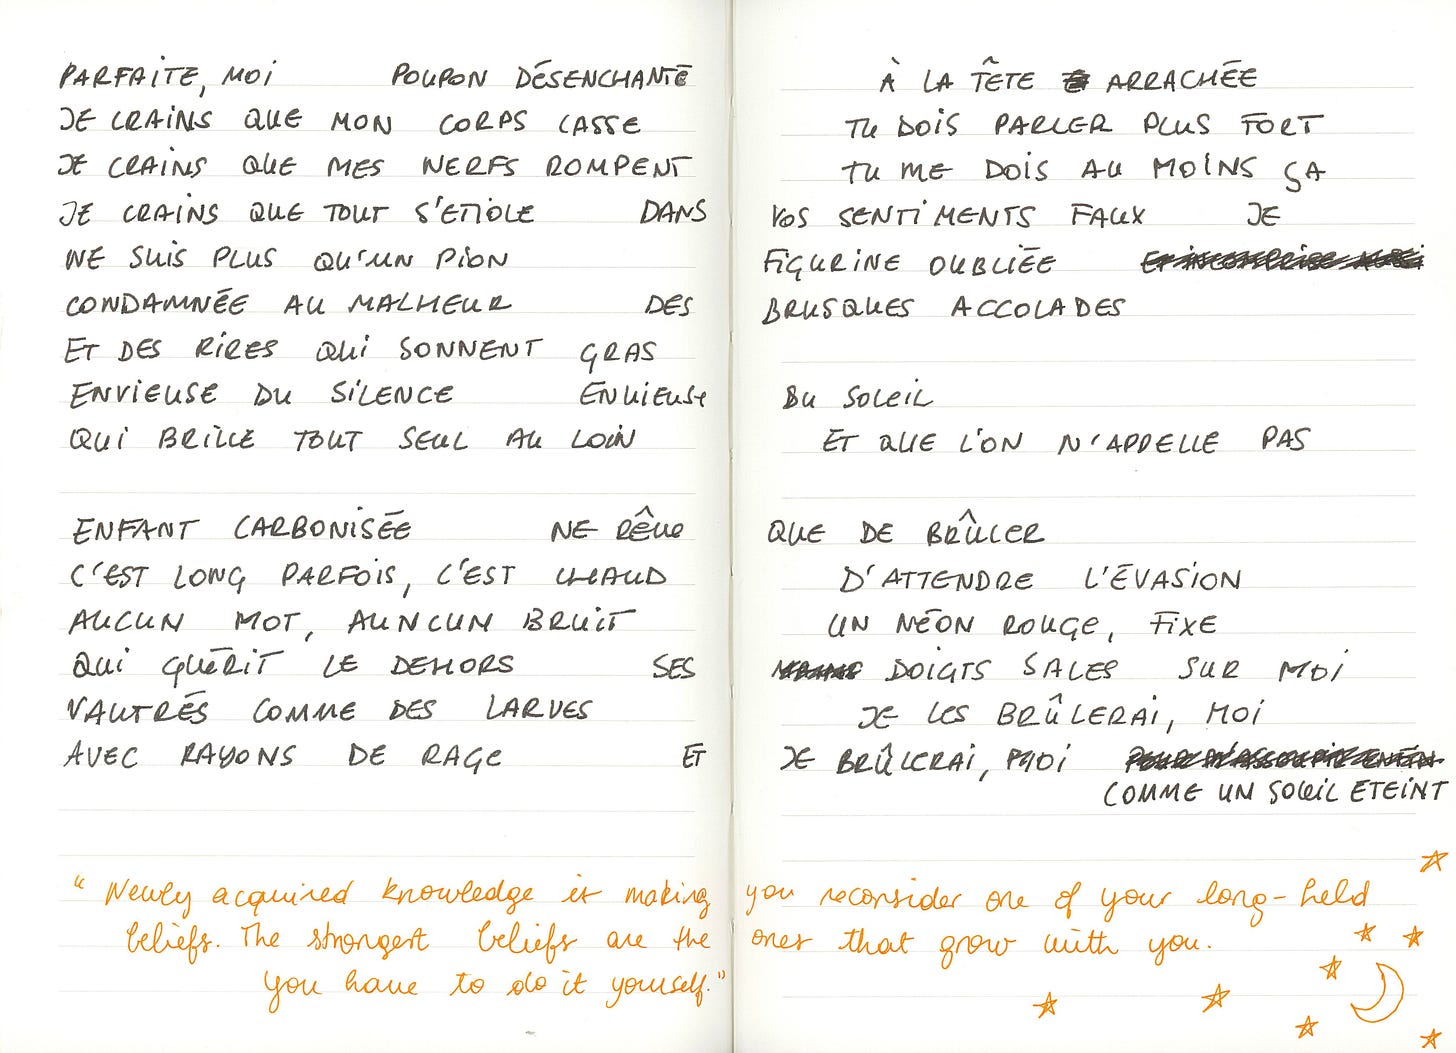 PARFAITE, MOI POUPON DÉSENCHANTÉ À LA TÊTE ARRACHÉE
JE CRAINS QUE MON CORPS CASSE TU DOIS PARLER PLUS FORT
JE CRAINS QUE MES NERFS ROMPENT TU ME DOIS AU MOINS ÇA
JE CRAINS QUE TOUT S'ETIOLE DANS VOS SENTIMENTS FAUX JE
NE SUIS PLUS QU'UN PION FIGURINE OUBLIÉE
CONDAMNÉE AU MALHEUR DES BRUSQUES ACCOLADES
ET DES RIRES QUI SONNENT GRAS
ENVIEUSE DU SILENCE ENVIEUSE DU SOLEIL
QUI BRILLE TOUT SEUL AU LOIN ET QUE L'ON N'APPELLE PAS
ENFANT CARBONISÉE NE RÊVE QUE DE BRÛLER
C'EST LONG PARFOIS, C'EST CHAUD D'ATTENDRE L'ÉVASION
AUCUN MOT, AUNCUN BRUIT UN NÉON ROUGE, FIXE
QUI GUÉRIT LE DEHORS SES DOIGTS SALES SUR MOI
VAUTRÉS COMME DES LARVES JE LES BRÛLERAI, MOI
AVEC RAYONS DE RAGE ET JE BRÛLERAI, MOI
COMME UN SOLEIL ETEINT
"Newly acquired knowledge is making you reconsider one of your long-held
beliefs. The strongest beliefs are the ones that grow with you.
You have to do it yourself."